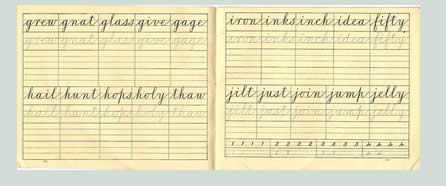 grew gnat glass give gage
grew gnat glass give gage
hail hunt hops holy thaw
hail hunt hops holy thaw
iron inks inch idea fifty
iron inks inch idea fifty
jilt just join jump jelly
jilt just join jump jelly
1 1 1 1 2 2 2 2 3 3 3 3